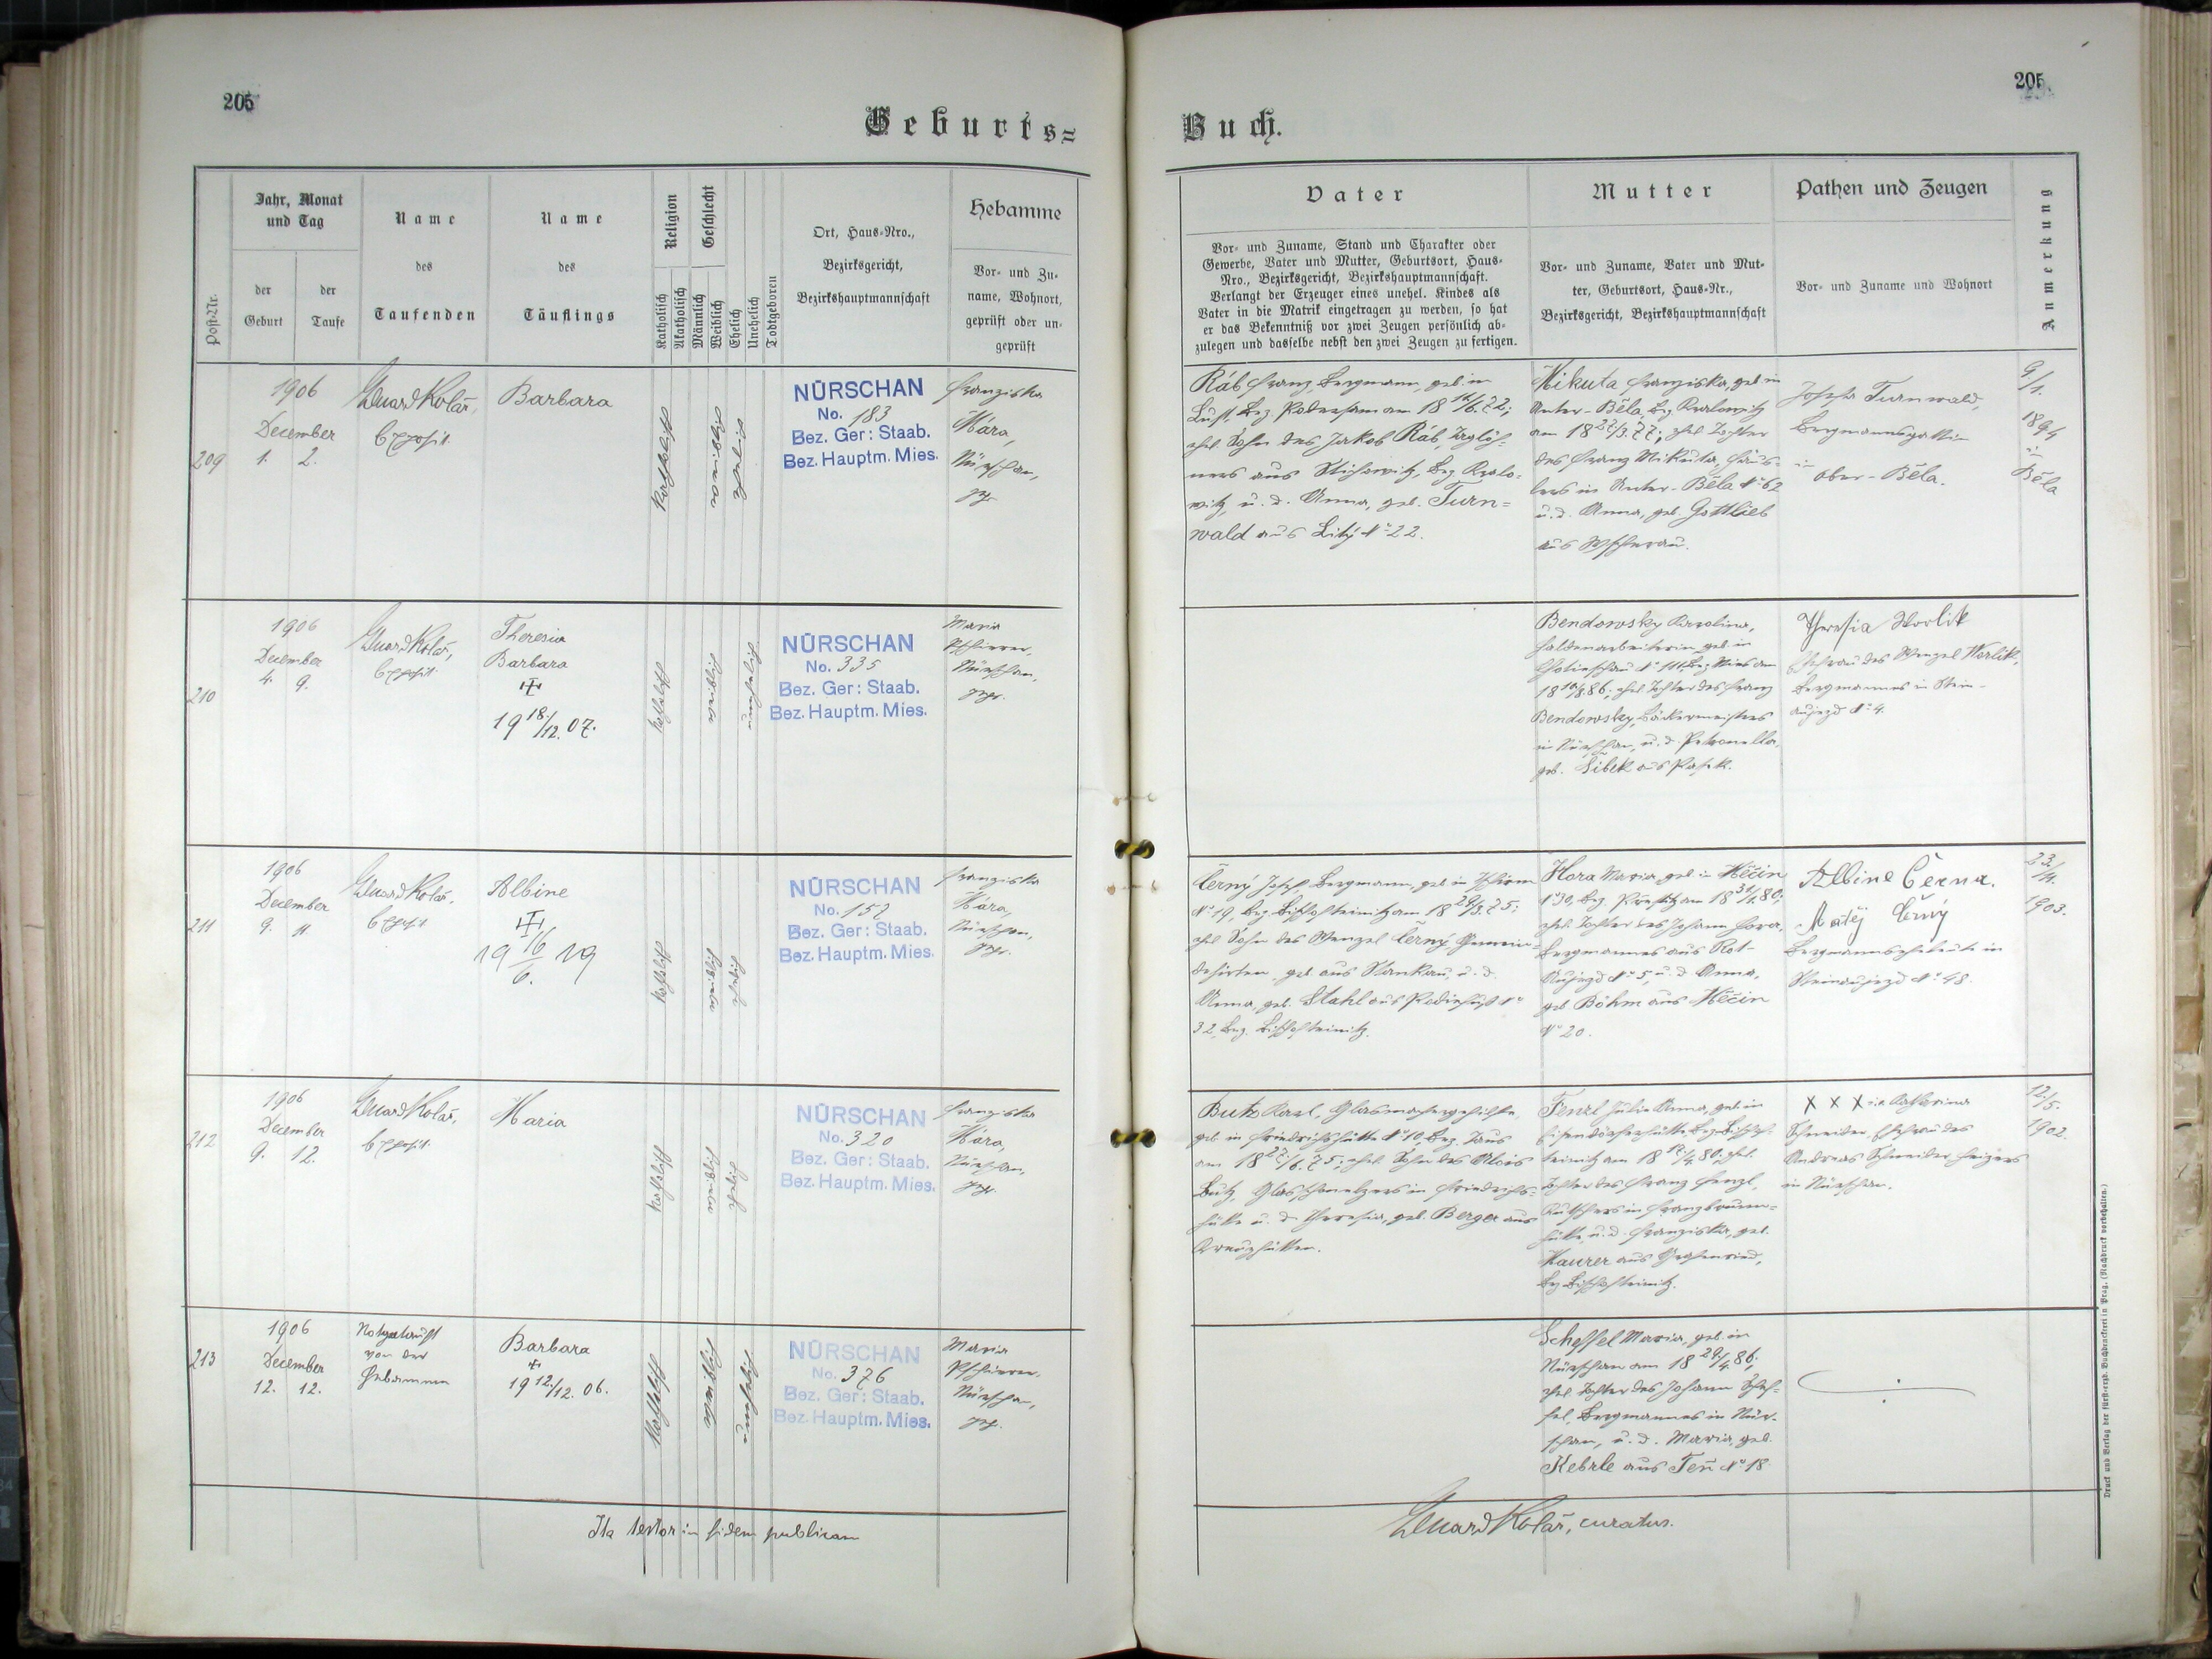 205
205
Geburts=
Buch.
Post-Nr.
Jahr, Monat
und Tag
der
Geburt
der
Taufe
Name
des
Taufenden
Name
des
Täuflings
Religion
Katholisch
Akatholisch
Geschlecht
Männlich
Weiblich
Ehelich
Unehelich
Todtgeboren
Ort, Haus-Nro.,
Bezirksgericht,
Bezirkshauptmannschaft
Hebamme
Vor- und Zu-
name, Wohnort,
geprüft oder un-
geprüft
Vater
Vor- und Zuname, Stand und Charakter oder
Gewerbe, Vater und Mutter, Geburtsort, Haus-
Nro., Bezirksgericht, Bezirkshauptmannschaft.
Verlangt der Erzeuger eines unehel. Kindes als
Vater in die Matrik eingetragen zu werden, so hat
er das Bekenntniß vor zwei Zeugen persönlich ab-
zulegen und dasselbe nebst den zwei Zeugen zu fertigen.
Mutter
Vor- und Zuname, Vater und Mut-
ter, Geburtsort, Haus-Nr.,
Bezirksgericht, Bezirkshauptmannschaft
Pathen und Zeugen
Vor- und Zuname und Wohnort
Anmerkung
209
1906
December
1. 2.
Eduard Kolář,
Exposit
Barbara
katholisch
NÜRSCHAN
No. 183
Bez. Ger: Staab.
Bez. Hauptm. Mies.
Franziska
Hára,
Nürschan,
gpr.
Ráb Franz, Bergmann, geb. in
Bez. Podersam am 18 16/6. 72;
ehel. Sohn des Jakob Ráb, Taglöh-
ners aus Bez. Kralo-
witz, u. d. Anna, geb. Turn=
wald aus Litý No 22.
Mikuta Franziska, geb. in
Unter-Běla, Bez. Kralowitz
am 18 22/3. 77; ehel. Tochter
des Franz Mikuta, Häus-
lers in Unter-Běla No 62
u. d. Anna, geb. Gottlieb
aus Wscherau.
Josefa Turnwald,
Bergmannsgattin
in Ober-Běla.
9/1.
1894
in
Běla
210
1906
December
4. 9.
Eduard Kolář,
Exposit
Theresia
Barbara
19 18./12. 07.
katholisch
NÜRSCHAN
No. 335
Bez. Ger: Staab.
Bez. Hauptm. Mies.
Maria
Nürschan,
gpr.
Bendowsky Karolina,
Haldenarbeiterin, geb. in
Chotieschau No 111, Bez. Mies am
ehel. Tochter des Franz
Bendowsky, Bäckermeisters
in Nürschan, u. d. Petronella,
geb. Šibek aus
Theresia Worlik
Ehefrau des Wenzel Worlik,
Bergmannes in Stein-
aujezd No 4.
211
1906
December
9. 11
Eduard Kolář,
Exposit
Albine
19 16/6. 19
katholisch
NÜRSCHAN
No. 157
Bez. Ger: Staab.
Bez. Hauptm. Mies.
Franziska
Hára,
Nürschan,
gpr.
Černý Josef, Bergmann, geb. in
No 19, Bez. Bischofteinitz am 18 28/3. 75;
ehel. Sohn des Wenzel Černý, Gemein-
dehirten, geb. aus Stankau, u. d.
Anna, geb. Stahl aus No
32, Bez. Bischofteinitz.
Hora Maria geb. in Měčin
No 30, Bez. Přestitz am 18 31/1. 80;
ehel. Tochter des Johann Hora,
Bergmannes aus Rot-
Aujezd No 5, u. d. Anna,
geb. Böhm aus Měčin
No 20.
Albine Černa.
Matěj Černý
Bergmannseheleute in
Steinaujezd No 48.
23./11.
1903.
212
1906
December
9. 12.
Eduard Kolář,
Exposit.
Maria
katholisch
NÜRSCHAN
No. 320
Bez. Ger: Staab.
Bez. Hauptm. Mies.
Franziska
Hára,
Nürschan,
gpr.
Butz Karl, Glasmachergehilfe,
geb. in Friedrichshütte No 10, Bez. Taus
am 18 27./6. 75; ehel. Sohn des Alois
Butz, Glasschmelzers in Friedrichs-
hütte u. d. Theresia, geb. Berger aus
Kreuzhütten.
Fenzl Julie Anna, geb. in
Bez. Bischof-
teinitz am 18 12/4. 80; ehel.
Tochter des Franz Fenzl,
Kutschers in Franzbrunn-
hütte, u. d. Franziska, geb.
Maurer aus Grafenried,
Bez. Bischofteinitz.
X X X Katharina
Schneider, Ehefrau des
Andreas Schneider, Heizers
in Nürschan.
12./5.
1902.
213
1906
December
12. 12.
Notgetauft
von der
Hebamme
Barbara
19 12./12. 06.
katholisch
NÜRSCHAN
No. 376
Bez. Ger: Staab.
Bez. Hauptm. Mies.
Maria
Nürschan,
gpr.
Scheffel Maria, geb. in
Nürschan am 18 29./4. 86,
ehel. Tochter des Johann Schef-
fel, Bergmannes in Nür-
schan, u. d. Maria, geb.
Kebrle aus Teň No 18
Ita testor in fidem publicam
Eduard Kolář, curatus.
Druck und Verlag der fürst-erzb. Buchdruckerei in Prag. (Nachdruck vorbehalten.)